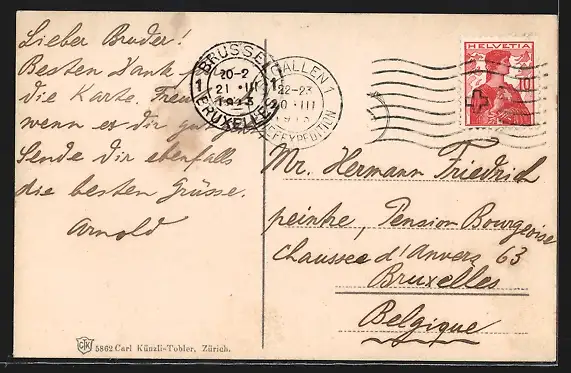 Lieber Bruder!
Besten Dank f
die Karte. Freut
wenn es dir gut
Sende dir ebenfalls
die besten Grüsse.
Arnold
BRUSSEL
1 20-2 1
21 III
BRUXELLES
GALLEN 1
22-23
20 III
BRIEFEXPEDITION
HELVETIA
10
Mr. Hermann Friedrich
peintre, Pension Bourgeoise
chaussee d'Anvers 63
Bruxelles
Belgique
5862 Carl Künzli-Tobler, Zürich.